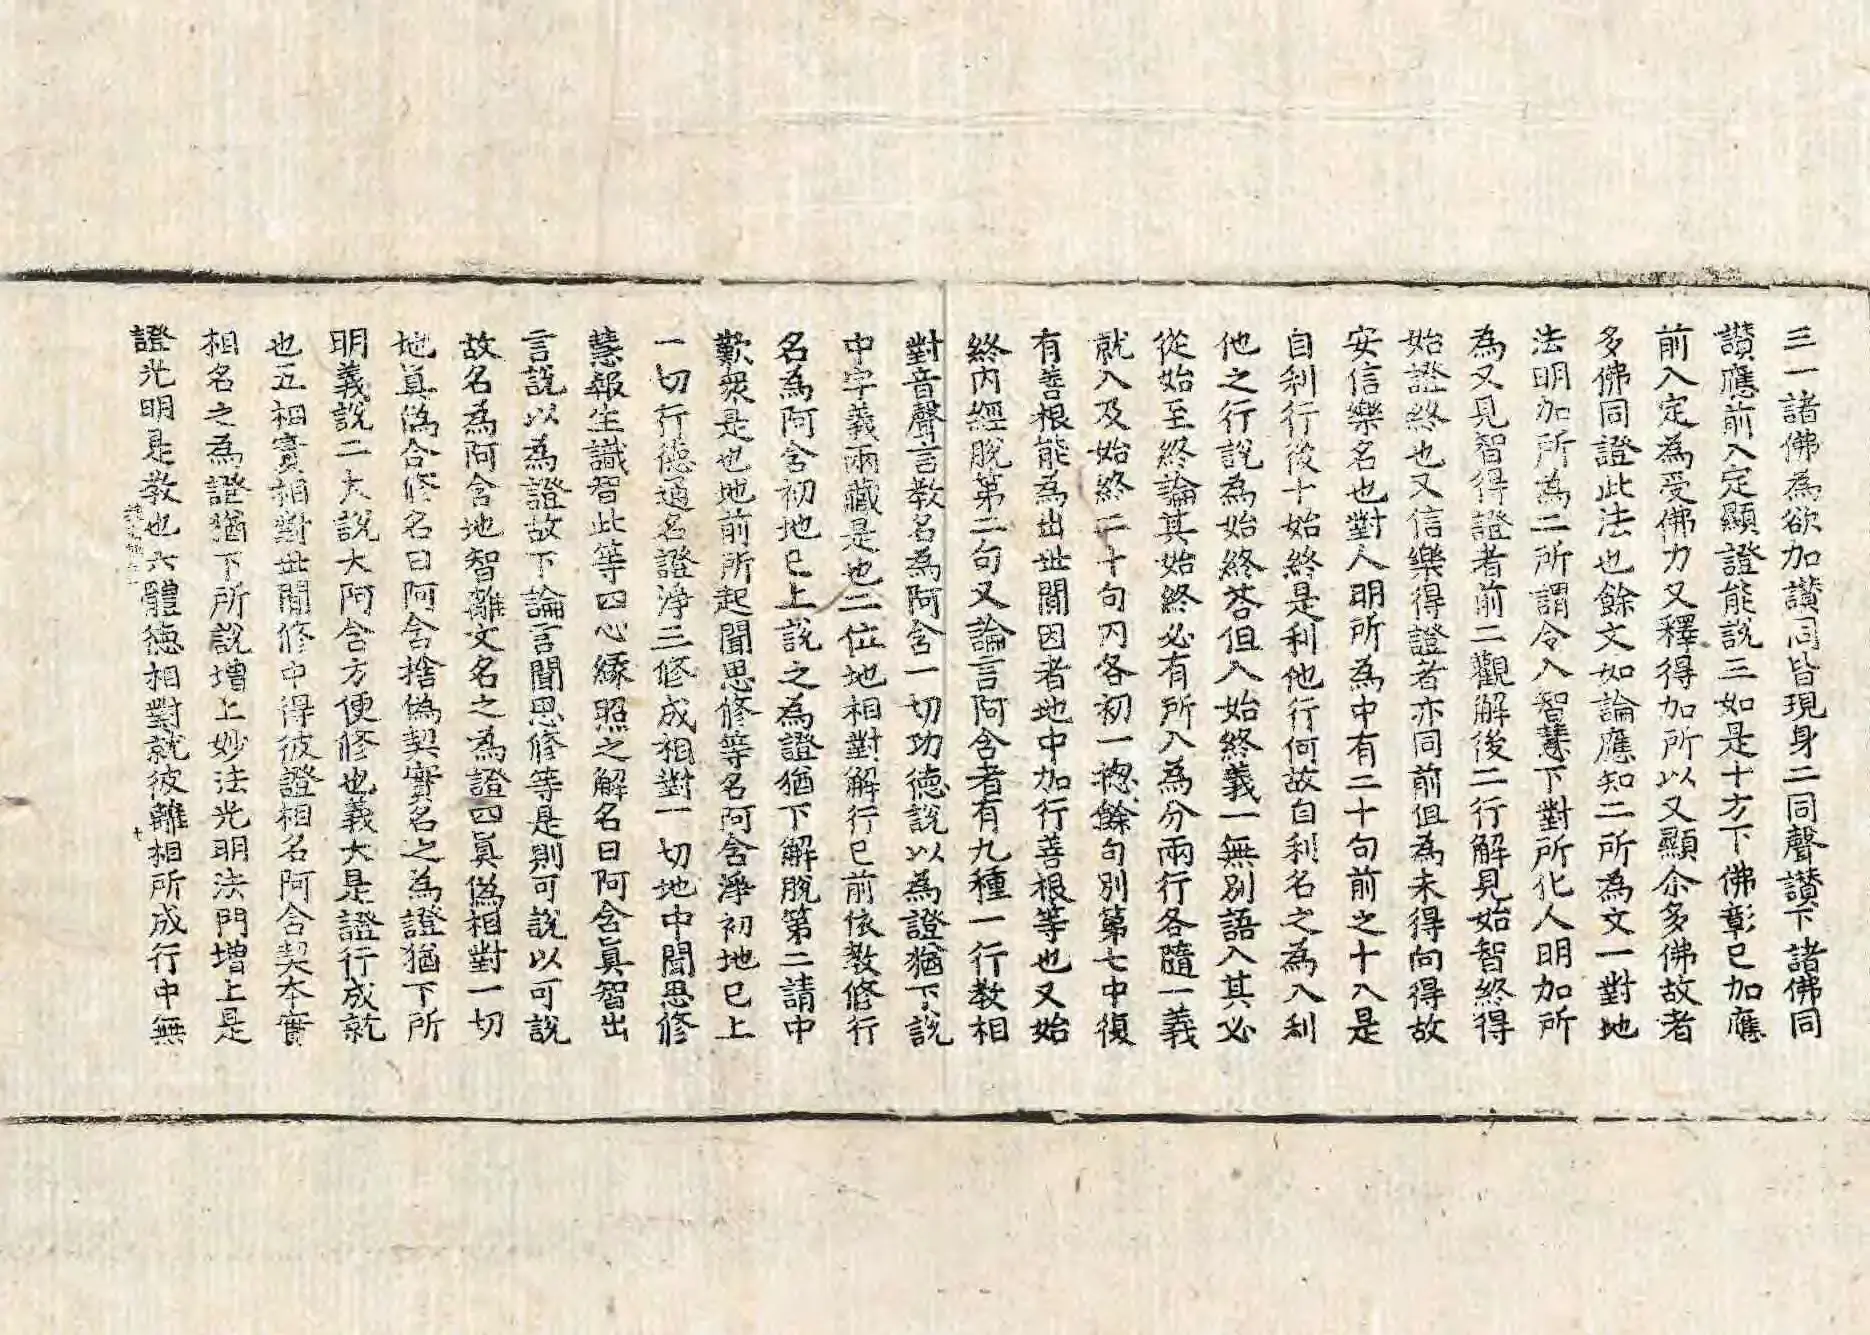 三一諸佛為欲加讃同皆現身二同聲讃下諸佛同
讃應前入定顯證能說三如是十方下佛彰已加應
前入定為受佛力又釋得加所以又顯尒多佛故者
多佛同證此法也餘文如論應知二所為文一對地
法明加所為二所謂令入智慧下對所化人明加所
為又見智得證者前二觀解後二行解見始智終得
始證終也又信樂得證者亦同前但為未得向得故
安信樂名也對人明所為中有二十句前之十入是
自利行後十始終是利他行何故自利名之為入利
他之行說為始終荅但入始終義一無別語入其必
從始至終論其始終必有所入為分兩行各隨一義
就入及始終二十句內各初一揔餘句別第七中復
有善根能為出世閒因者地中加行善根等也又始
終內經脫第二句又論言阿含者有九種一行教相
對音聲言教名為阿含一切功德說以為證猶下說
中字義兩藏是也二位地相對解行已前依教修行
名為阿含初地已上說之為證猶下解脫第二請中
歎衆是也地前所起聞思修等名阿含淨初地已上
一切行德通名證淨三修成相對一切地中聞思修
慧報生識智此等四心緣照之解名曰阿含真智出
言說以為證故下論言聞思修等是則可說以可說
故名為阿含地智離文名之為證四真偽相對一切
地真偽合修名曰阿含捨偽契實名之為證猶下所
明義說二大說大阿含方便修也義大是證行成就
也五相實相對世間修中得彼證相名阿含契本實
相名之為證猶下所說增上妙法光明法門增上是
證光明是教也六體德相對就彼離相所成行中無